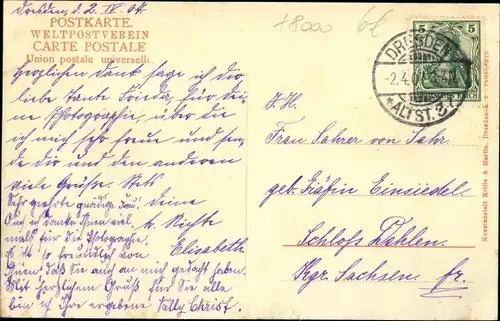 Dresden, d. 2. IV. 04.
POSTKARTE.
WELTPOSTVEREIN
CARTE POSTALE
Union postale universelle
Herzlichen Dank sage ich dir,
liebe Tante Frieda, für dei-
ne Photographie, über die
ich mich sehr freue und sen-
de dir und den anderen
viele Grüße. Stets
d. Nichte
Elisabeth
Sehr geehrte gnädige Frau!
Auch ich danke Ihnen viel-
mals für die Photographie.
Es ist so freundlich von
Ihnen daß Sie auch an mich gedacht haben.
Mit herzlichem Gruß für Sie alle
bin ich Ihre ergebene Tally Christ.
+8000
5 5
DRESDEN
-2.4.0
*ALTST. 3
I. H.
Frau Sahrer von Sahr
geb. Gräfin Einsiedel
Schloß Dahlen
Kgr. Sachsen. fr.
Kunstanstalt Krille & Martin, Dresden-A